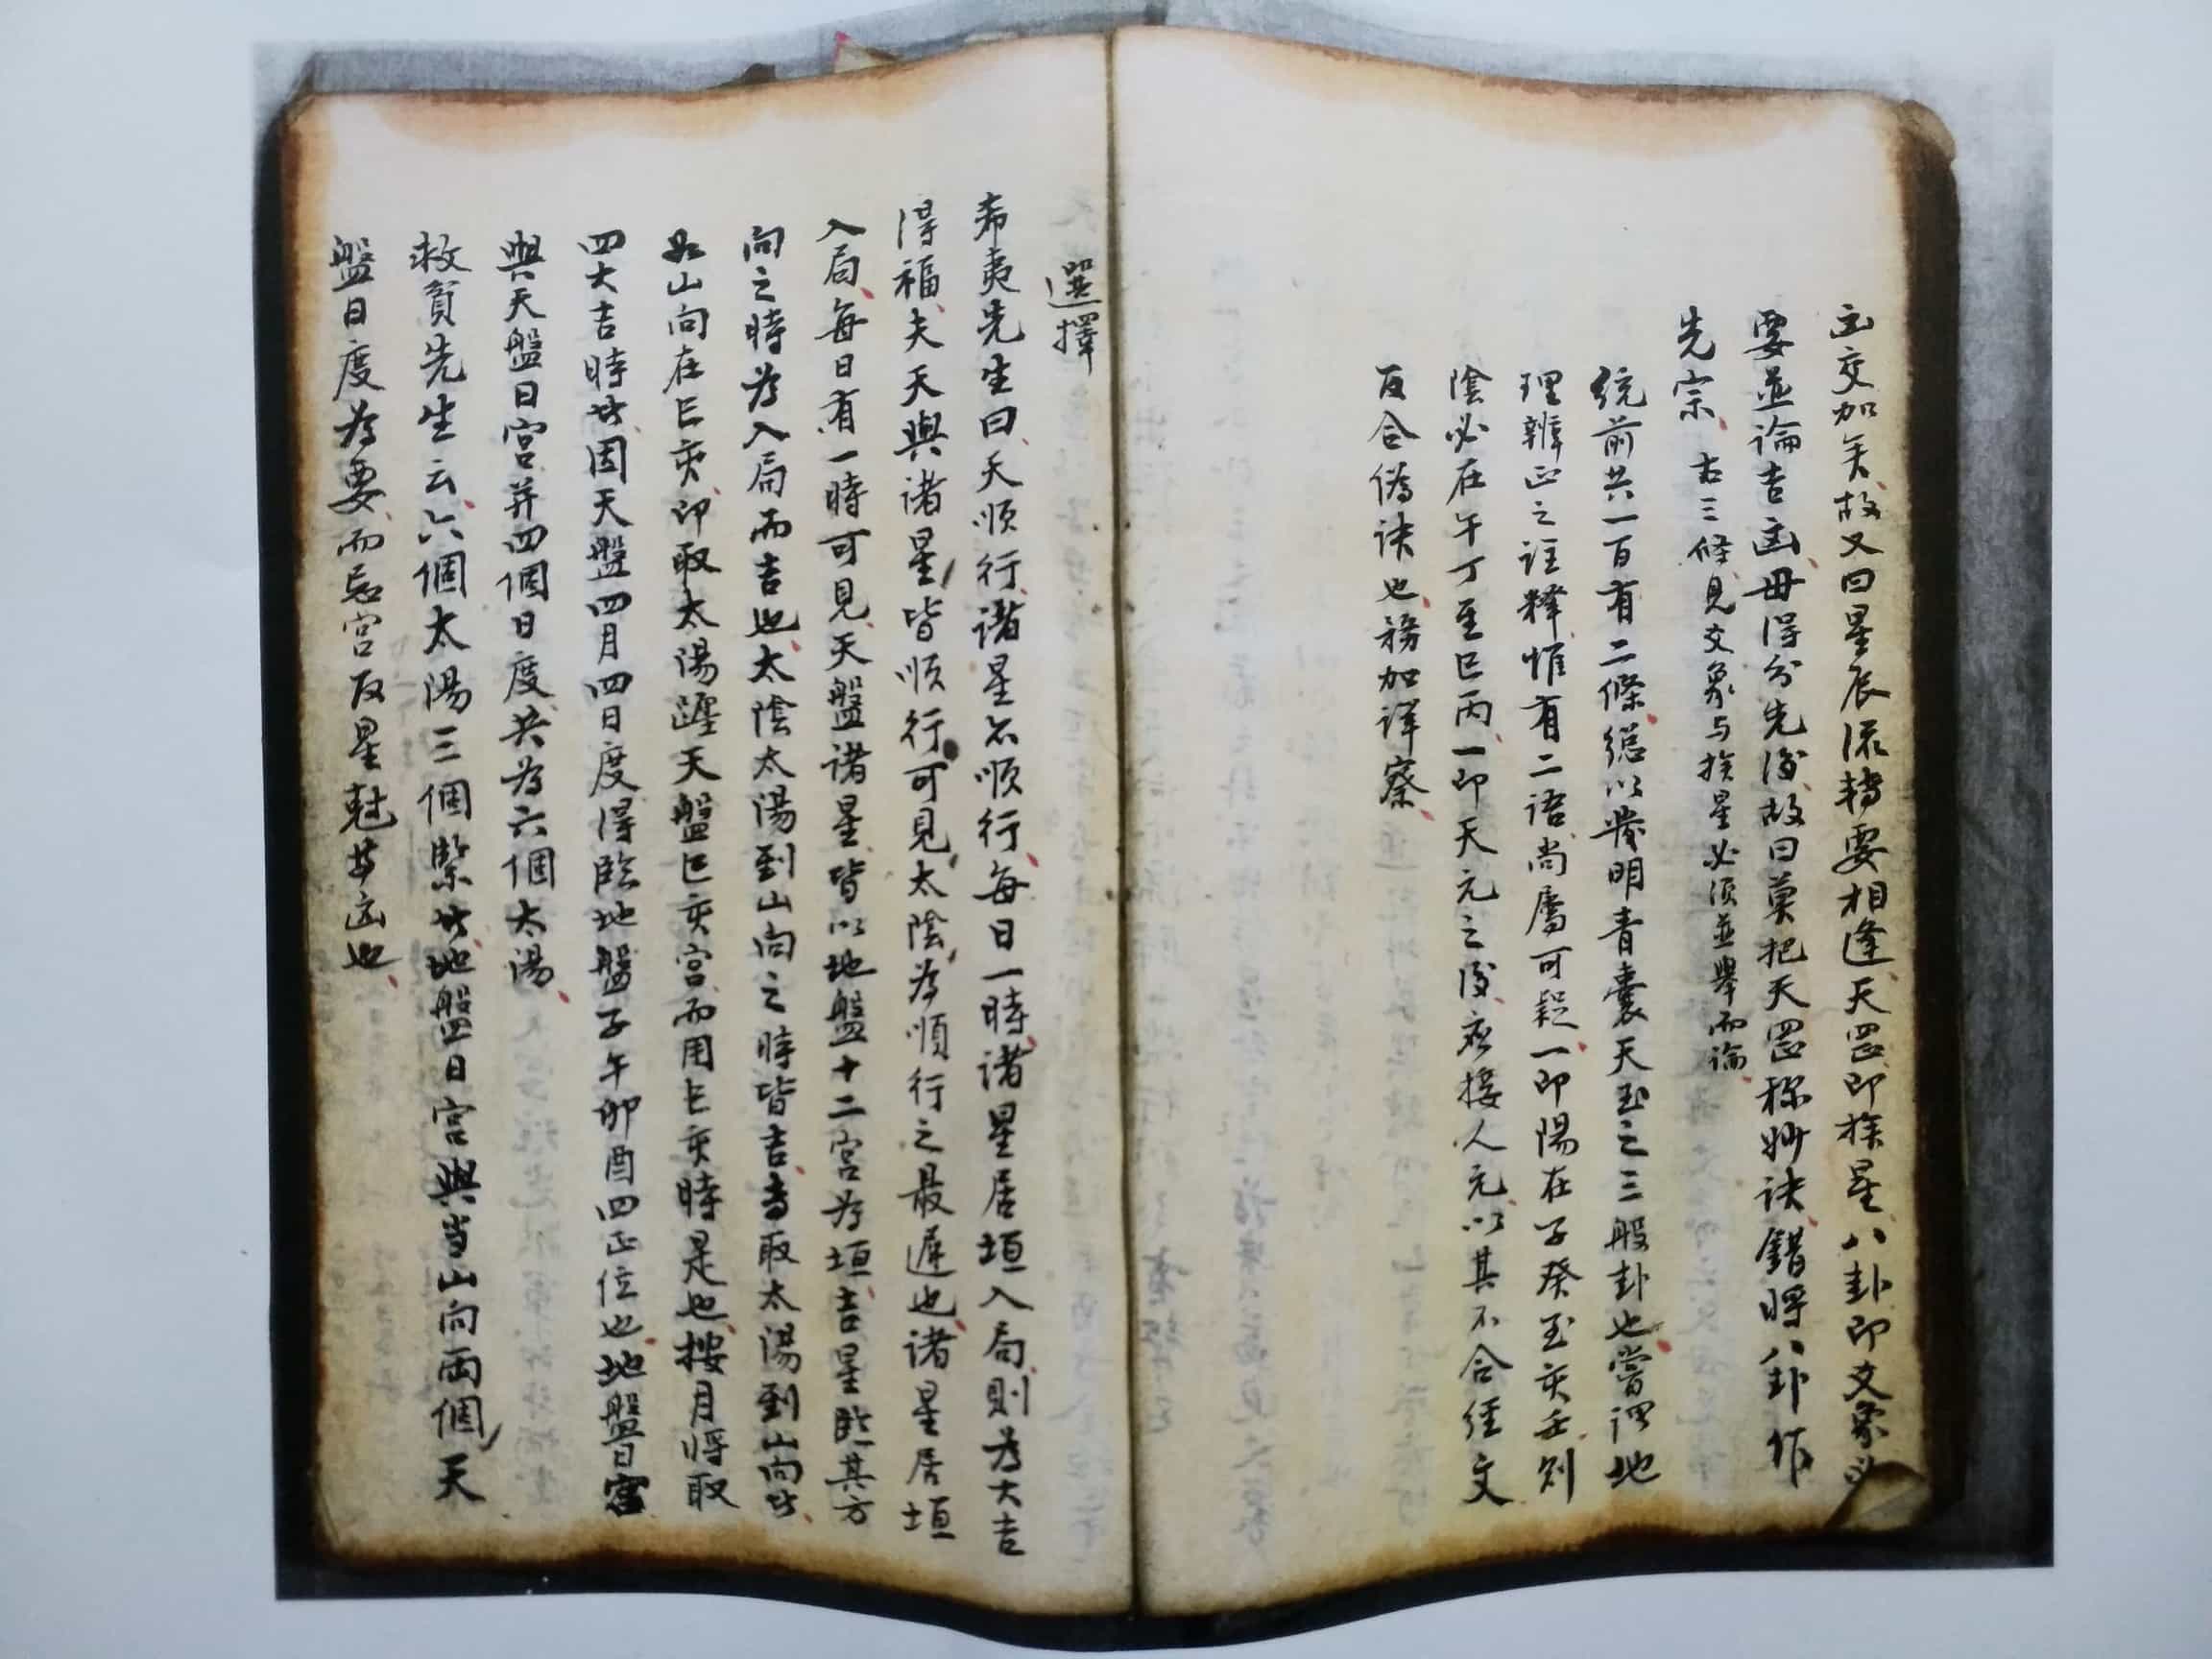 凶交加矣、故又曰星辰流轉要相逢、天罡即挨星八卦即爻象必
要並論吉凶、毋得分先後、故曰莫把天罡称妙訣、錯將八卦作
先宗、右三條見爻象与挨星必須並舉而論、
統前共一百有二條、總以發明青囊天玉之三般卦也、嘗谓地
理辨正之註釋惟有二语尚屬可疑、一即陽在子癸至亥壬則
陰必在午丁至巳丙、一即天元之後亥接人元、以其不合經文
反合偽訣也、務加詳察、
選擇
希夷先生曰、天順行、諸星亦順行、每日一時、諸星居垣入局、則為大吉
得福、夫天與諸星皆順行可見、太陰為順行之最遲也、諸星居垣
入局、每日有一時可見、天盤諸星皆以地盤十二宮為垣、吉星臨其方
向之時為入局而吉也、太陰太陽到山向之時皆吉、專取太陽到山向時、
如山向在巳亥、即取太陽躔天盤巳亥宮、而用巳亥時是也、按月將取
四大吉時此因天盤四月四日度得臨地盤子午卯酉四正位也、地盤日宮
與天盤日宮并四個日度、共為六個太陽、
救貧先生云、六個太陽三個緊、此地盤日宮與当山向兩個天
盤日度為要、而忌宮反星尅其凶也、